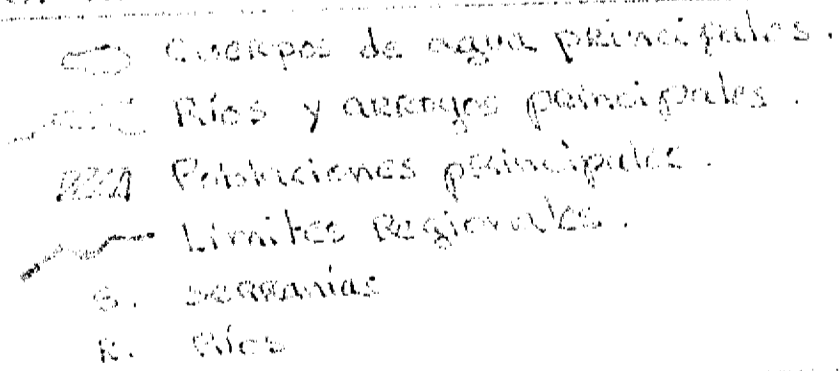 Cuerpos de agua principales.
Ríos y arroyos principales.
Poblaciones principales.
Límites Regionales.
S. Serranías
R. Ríos